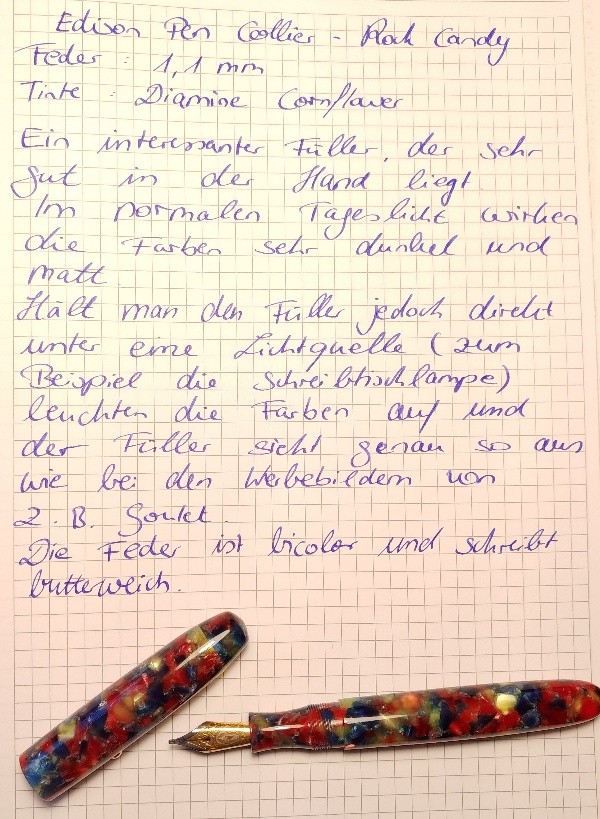 Edison Pen Collier - Rock Candy
Feder : 1,1 mm
Tinte : Diamine Cornflower
Ein interessanter Füller, der sehr
gut in der Hand liegt.
Im normalen Tageslicht wirken
die Farben sehr dunkel und
matt.
Hält man den Füller jedoch direkt
unter eine Lichtquelle (zum
Beispiel die Schreibtischlampe)
leuchten die Farben auf und
der Füller sieht genau so aus
wie bei den Werbebildern von
z. B. Goulet.
Die Feder ist bicolor und schreibt
butterweich.